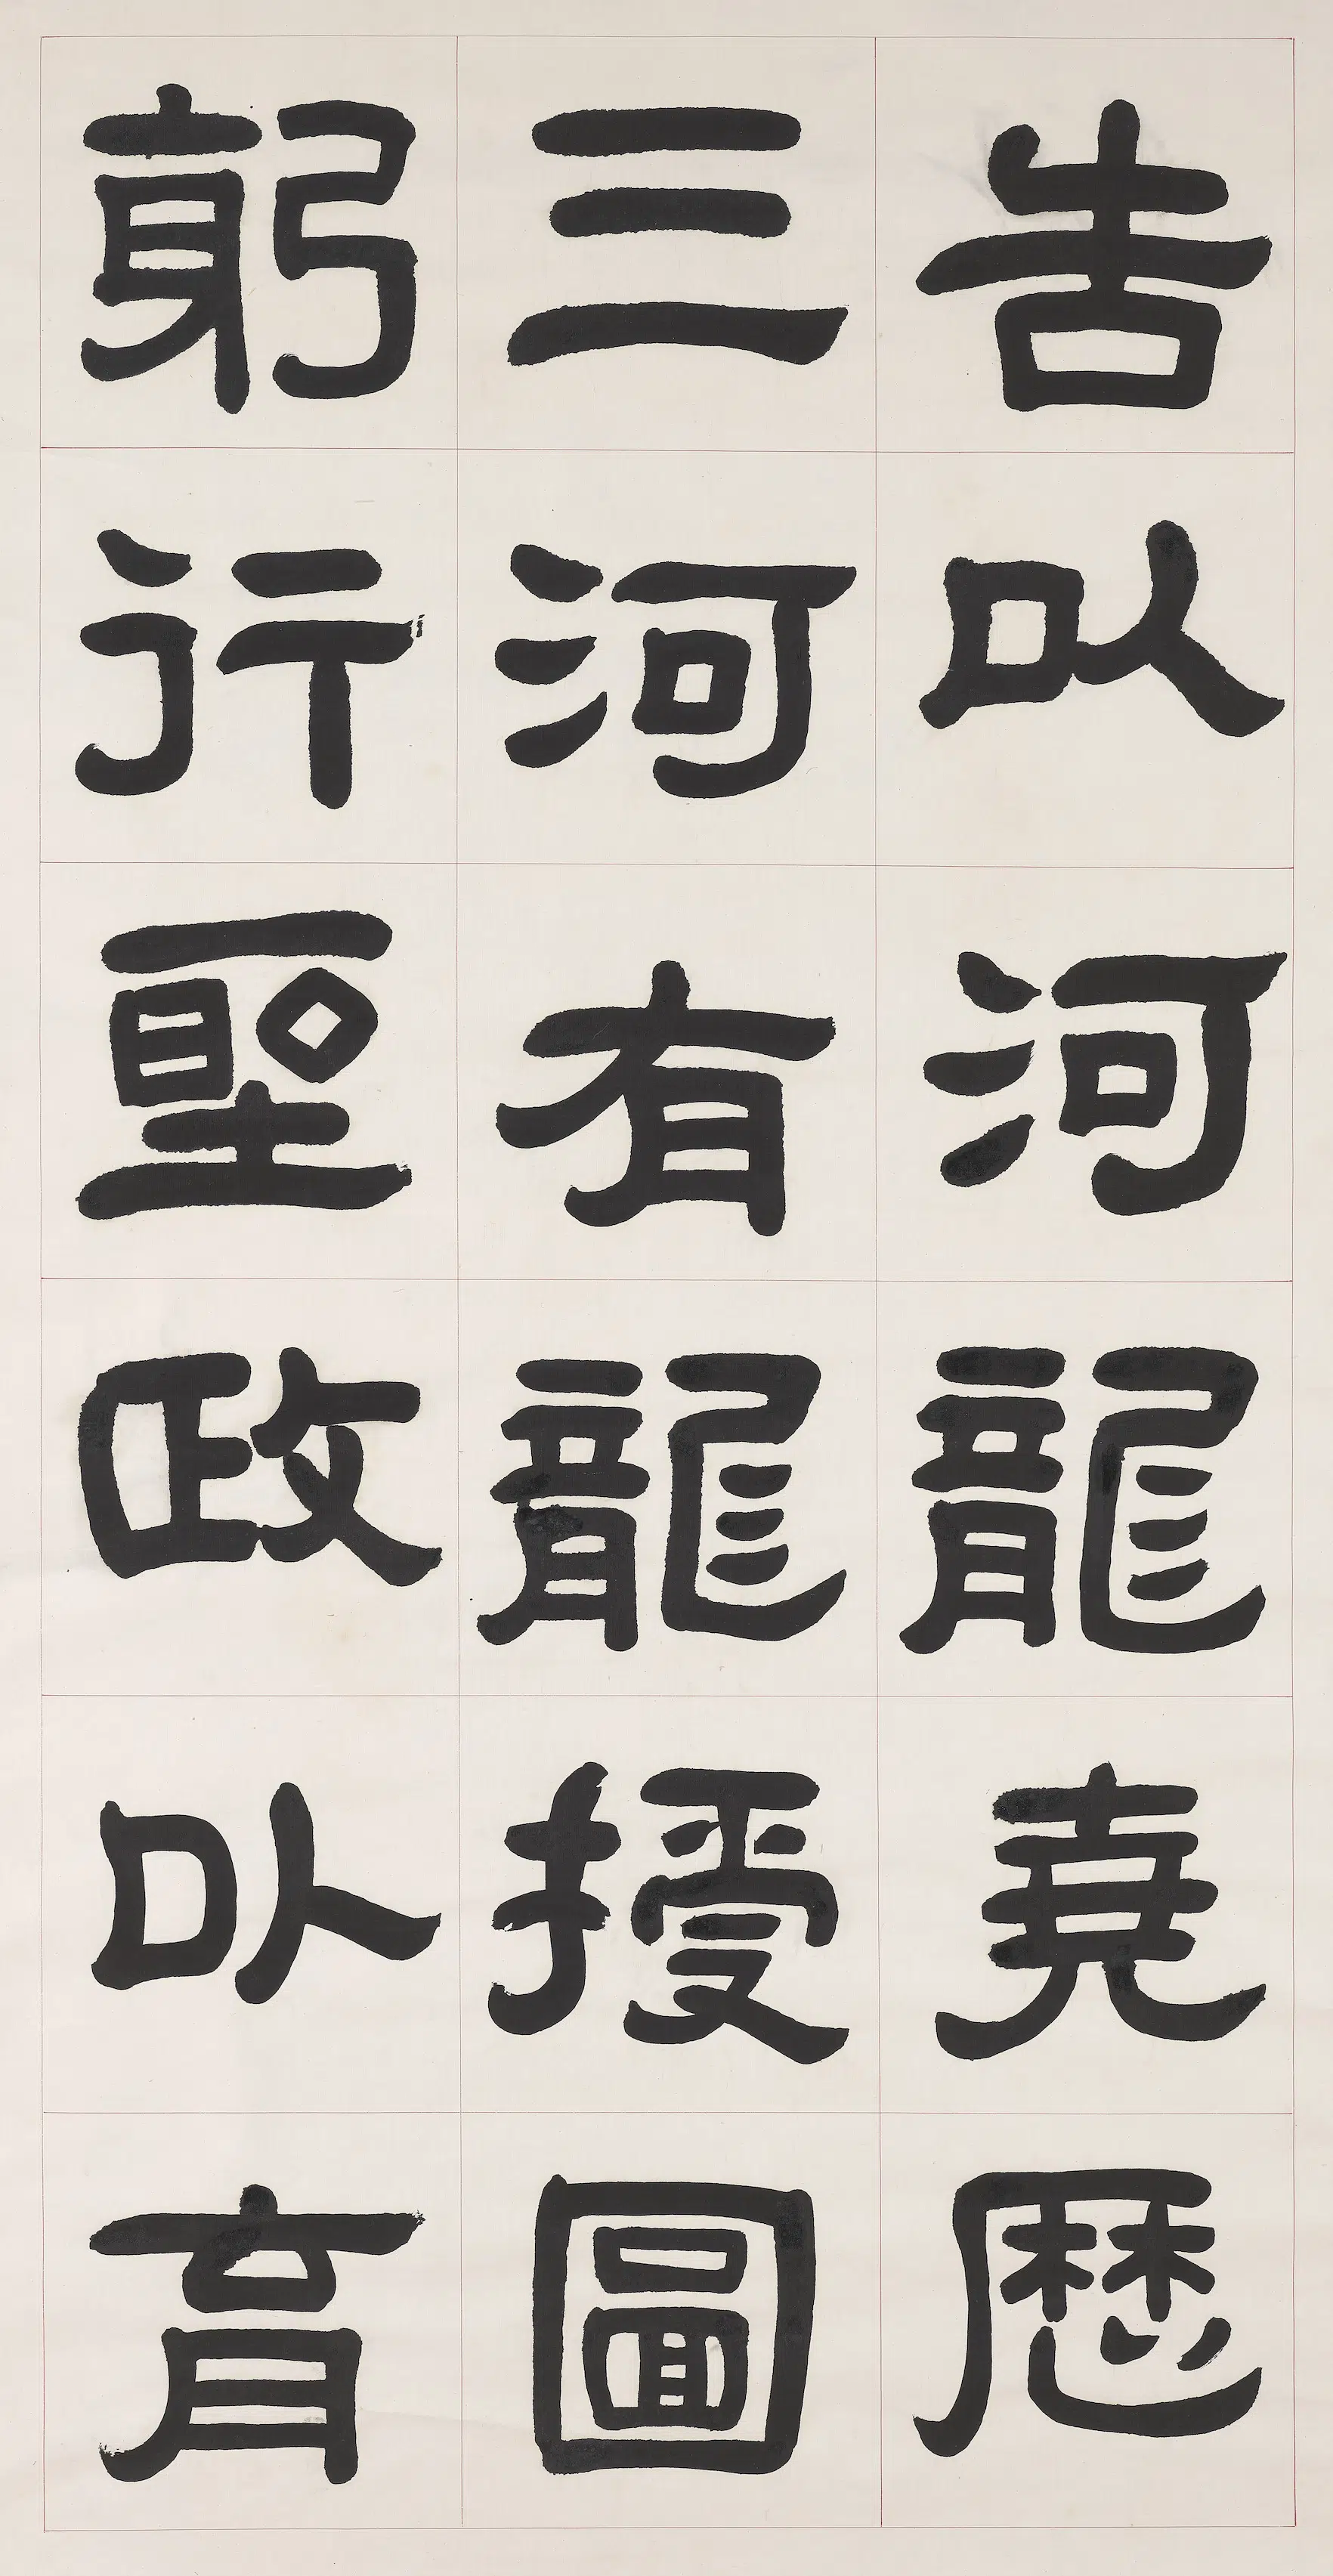 告以河龍堯歷
三河有龍授圖
躬行聖政以育